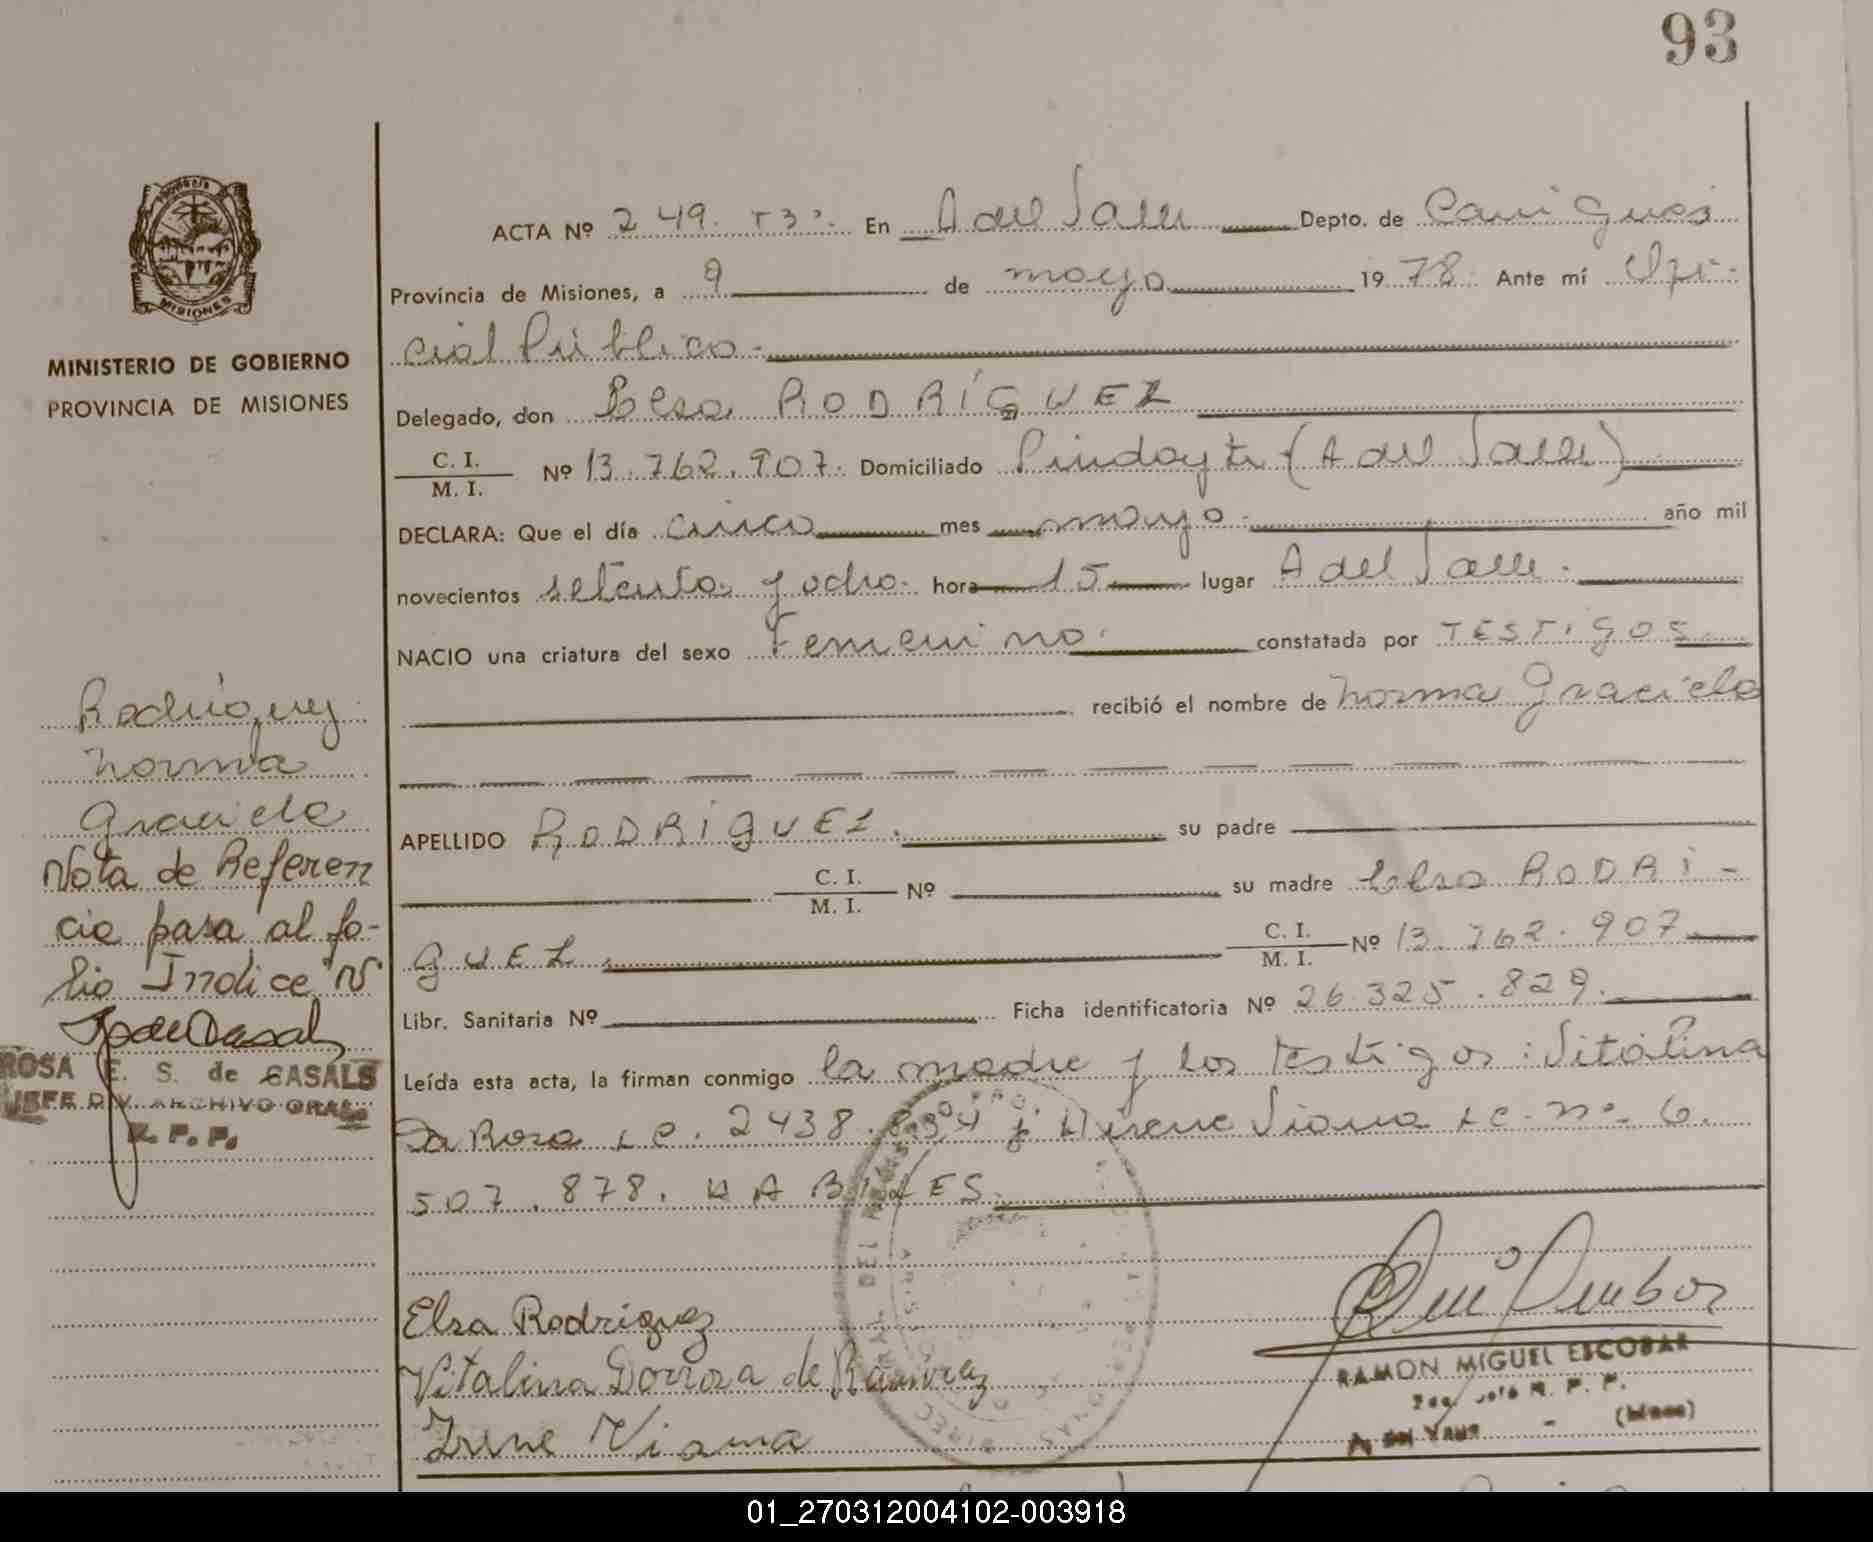 93
MISIONES
MINISTERIO DE GOBIERNO
PROVINCIA DE MISIONES
ACTA Nº 249. T3º. En A del Valle Depto. de Cainguás
Provincia de Misiones, a 9 de mayo 1978 Ante mí Ofi-
cial Público.
Delegado, don Elsa RODRÍGUEZ
C. I. / M. I. Nº 13.762.907. Domiciliado Pindayti (A del Valle)
DECLARA: Que el día cinco mes mayo año mil
novecientos setenta y ocho. hora 15 lugar A del Valle.
NACIO una criatura del sexo Femenino. constatada por TESTIGOS
recibió el nombre de Norma Graciela
APELLIDO RODRÍGUEZ. su padre
C. I. / M. I. Nº su madre Elsa RODRI-
GUEZ. C. I. / M. I. Nº 13.762.907
Libr. Sanitaria Nº Ficha identificatoria Nº 26.325.829.
Leída esta acta, la firman conmigo la madre y los testigos: Vitalina
Da Rosa L C. 2438. y Hirene Viana L C. nº 6.
507.878. HABILES.
Rodríguez
Norma
Graciela
Nota de Referen
cia pasa al fo-
lio Indice "N"
ROSA E. S. de CASALS
JEFE DIV. ARCHIVO GRAL.
R. P. P.
Elsa Rodríguez
Vitalina Dorrosa de Ramírez
Irene Viana
RAMON MIGUEL ESCOBAR
R. P. P.
A. DEL VALLE - (Mnes)
01_270312004102-003918